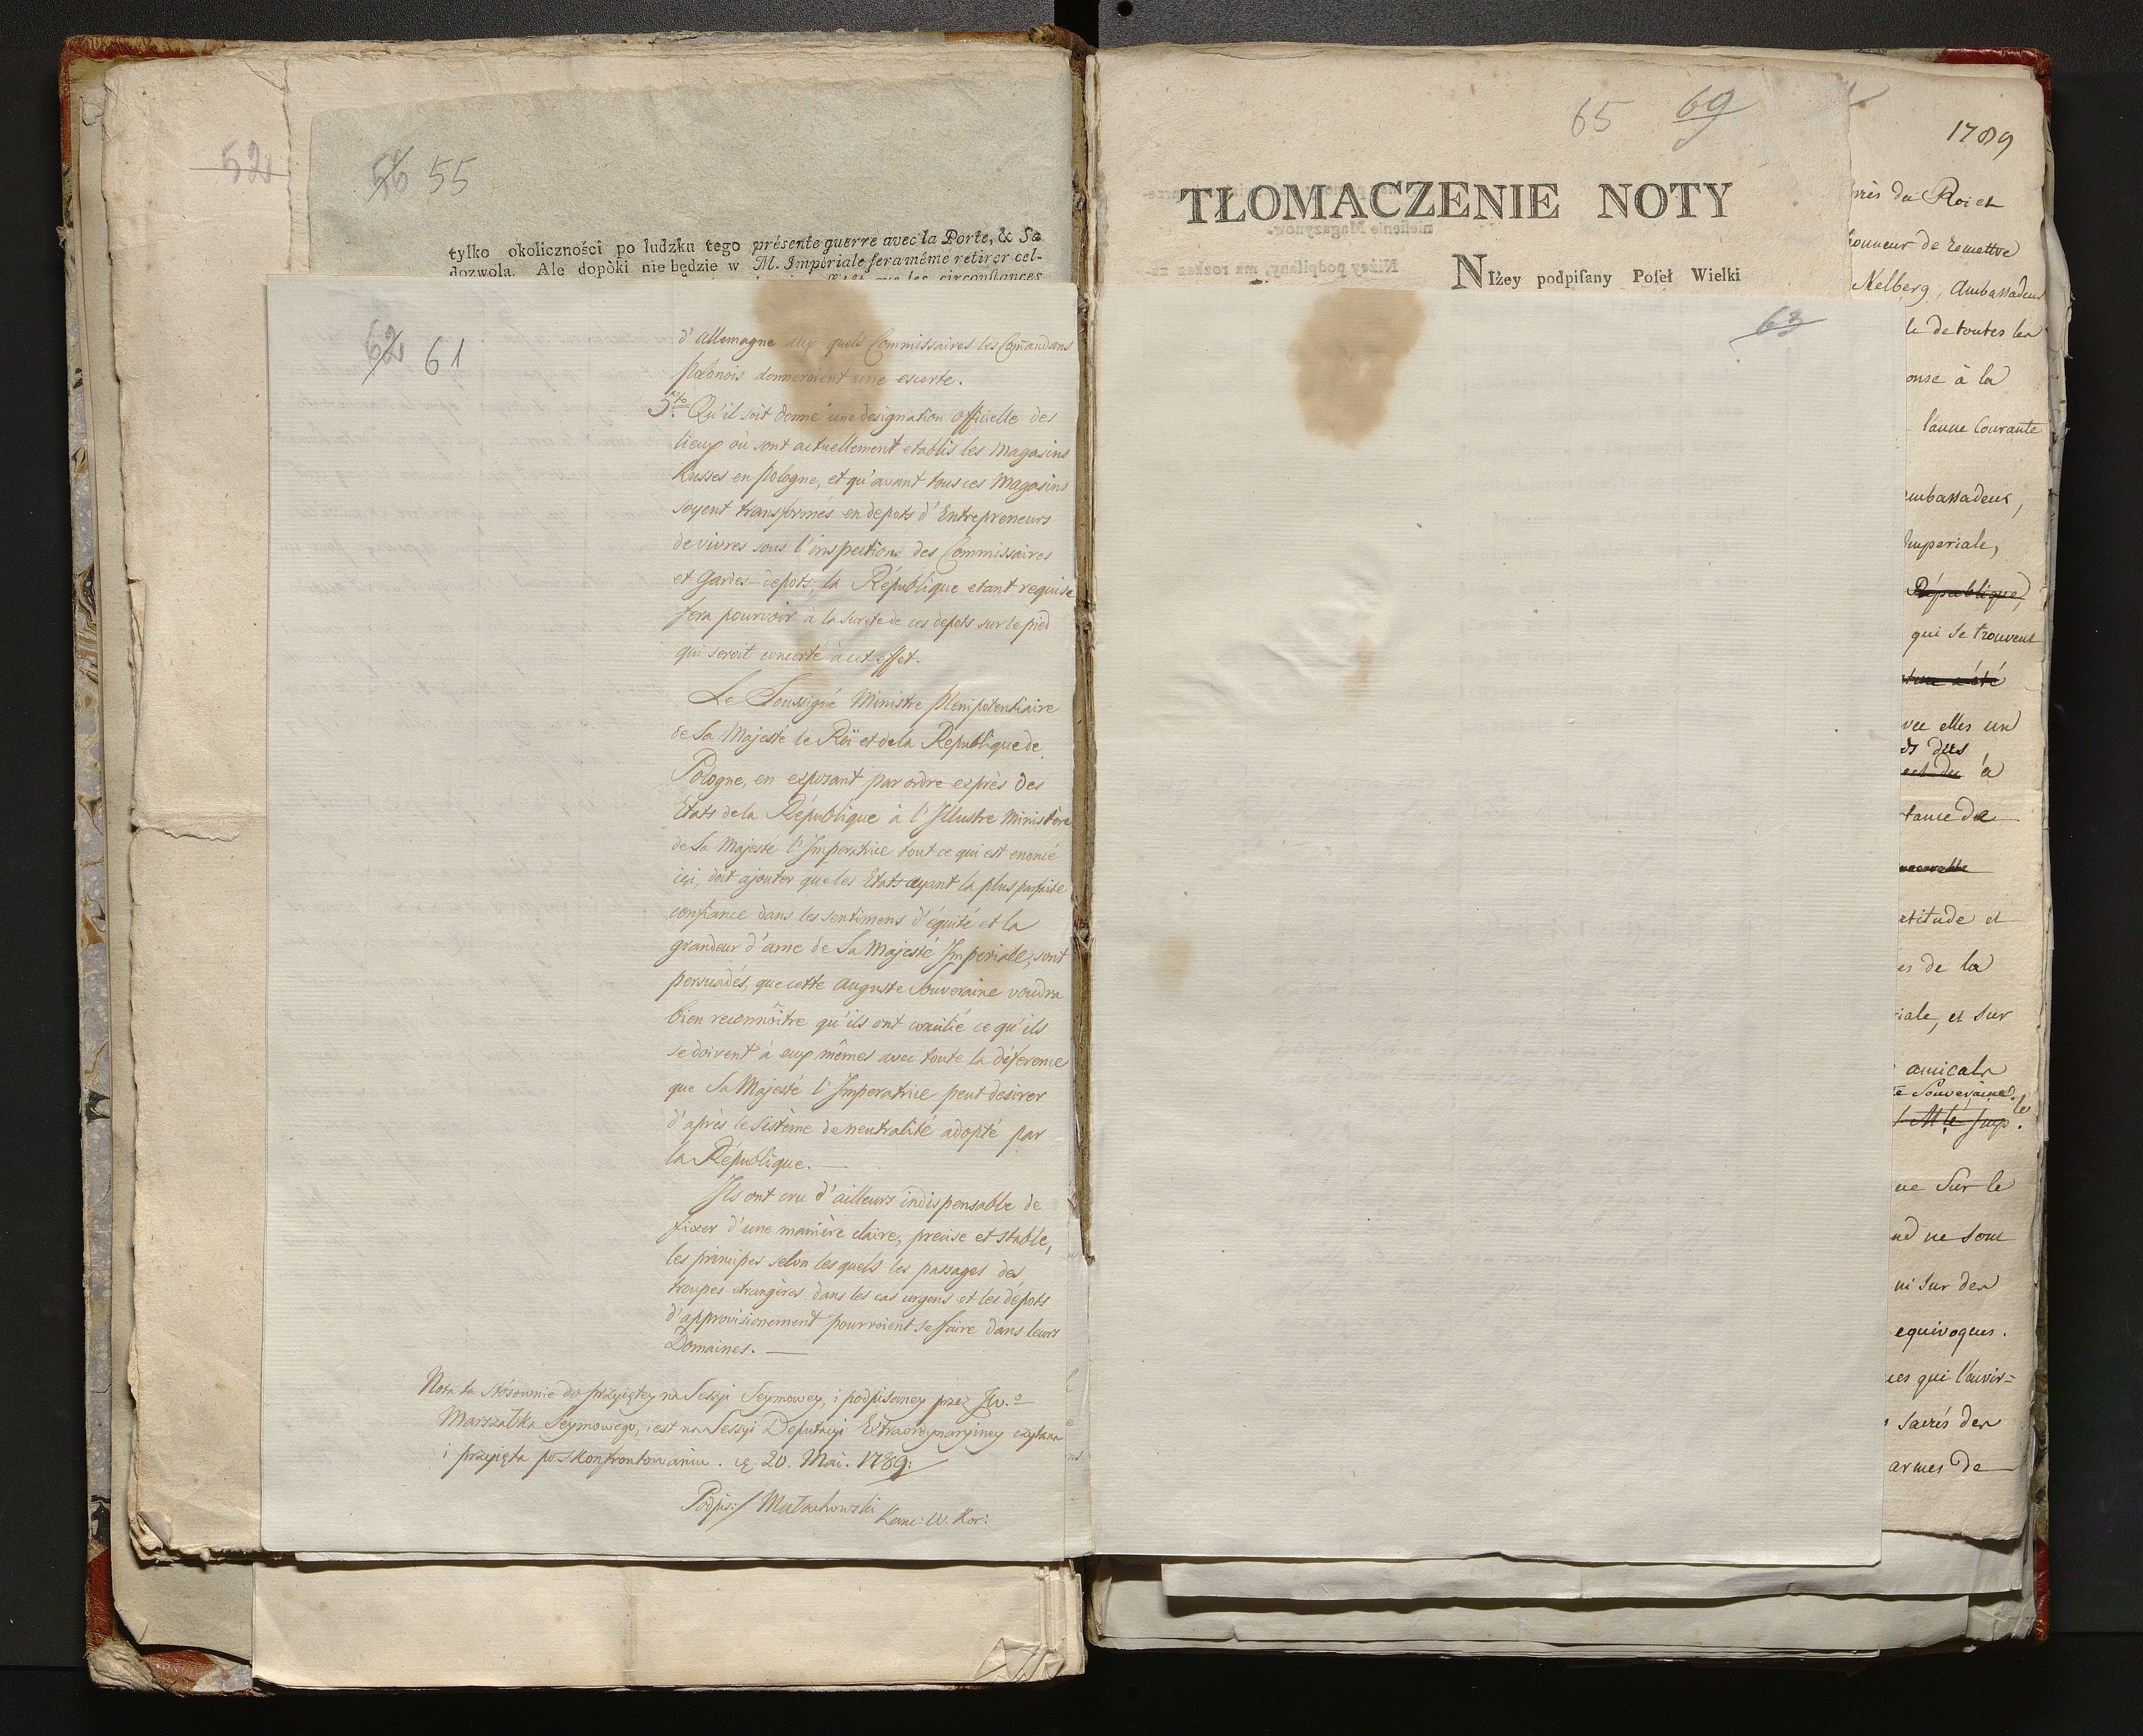 52
56 55
tylko okoliczności po ludzku tego
dozwola. Ale dopòki nie będzie w
présente guerre avec la Porte, & Sa
M. Impériale fera même retirer cel-
les circonstances
62 61
d'Allemagne aux quels Commissaires les Comandans
polonois donneroient une escorte.
5to Qu'il soit donné une designation officielle des
lieux où sont actuellement etablis les Magasins
Russes en Pologne, et qu'avant tous ces Magasins
soyent transformés en depots d'Entrepreneurs
de vivres sous l'inspection des Commissaires
et Gardes-depots; la République etant requise
fera pourvoir à la sureté de ces depots sur le pied
qui seroit concerté à cet effet.
Le Soussigné Ministre plenipotentiaire
de Sa Majesté le Roi et de la République de
Pologne, en exposant par ordre exprès des
Etats de la République à l'Illustre Ministère
de Sa Majesté l'Imperatrice tout ce qui est enoncé
ici, doit ajouter que les Etats ayant la plus parfaite
confiance dans les sentimens d'équité et la
grandeur d'ame de Sa Majesté Imperiale, sont
persuadés, que cette Auguste Souveraine voudra
bien reconnôitre qu'ils ont concilié ce qu'ils
se doivent à eux mêmes avec toute la déference
que Sa Majesté l'Imperatrice peut desirer
d'après le Sistème de neutralité adopté par
la République.—
Ils ont cru d'ailleurs indispensable de
fixer d'une manière claire, precise et stable,
les principes selon lesquels les passages des
troupes etrangères dans les cas urgens et les dépots
d'approvisionement pourroient se faire dans leurs
Domaines.—
Nota ta stósownie do przyiętey na Sessyi Seymowey, i podpisaney przez Jw.o
Marszałka Seymowego, iest na Sessyi Deputacyi Extraordynaryiney czytana
i przyięta po skonfrontowaniu. 20. Mai. 1789:
Podpis:/ Małachowski Kanc: W. Kor:
65 69
TŁOMACZENIE NOTY
NIżey podpiſany Poſeł Wielki
63
1789
près du Roi et
honneur de remettre
Kelberg, Ambassadeur
le de toutes les
onse à la
l'année Courante
Ambassadeur,
Imperiale,
République,
qui se trouvent
a été
vec elles un
dus
est du à
tance de
ctitude et
es de la
iale, et sur
amicale
te Souveraine.
ue Sur le
nd ne sont
ni sur des
equivoques.
ues qui l'envir=
sacrés des
armes de